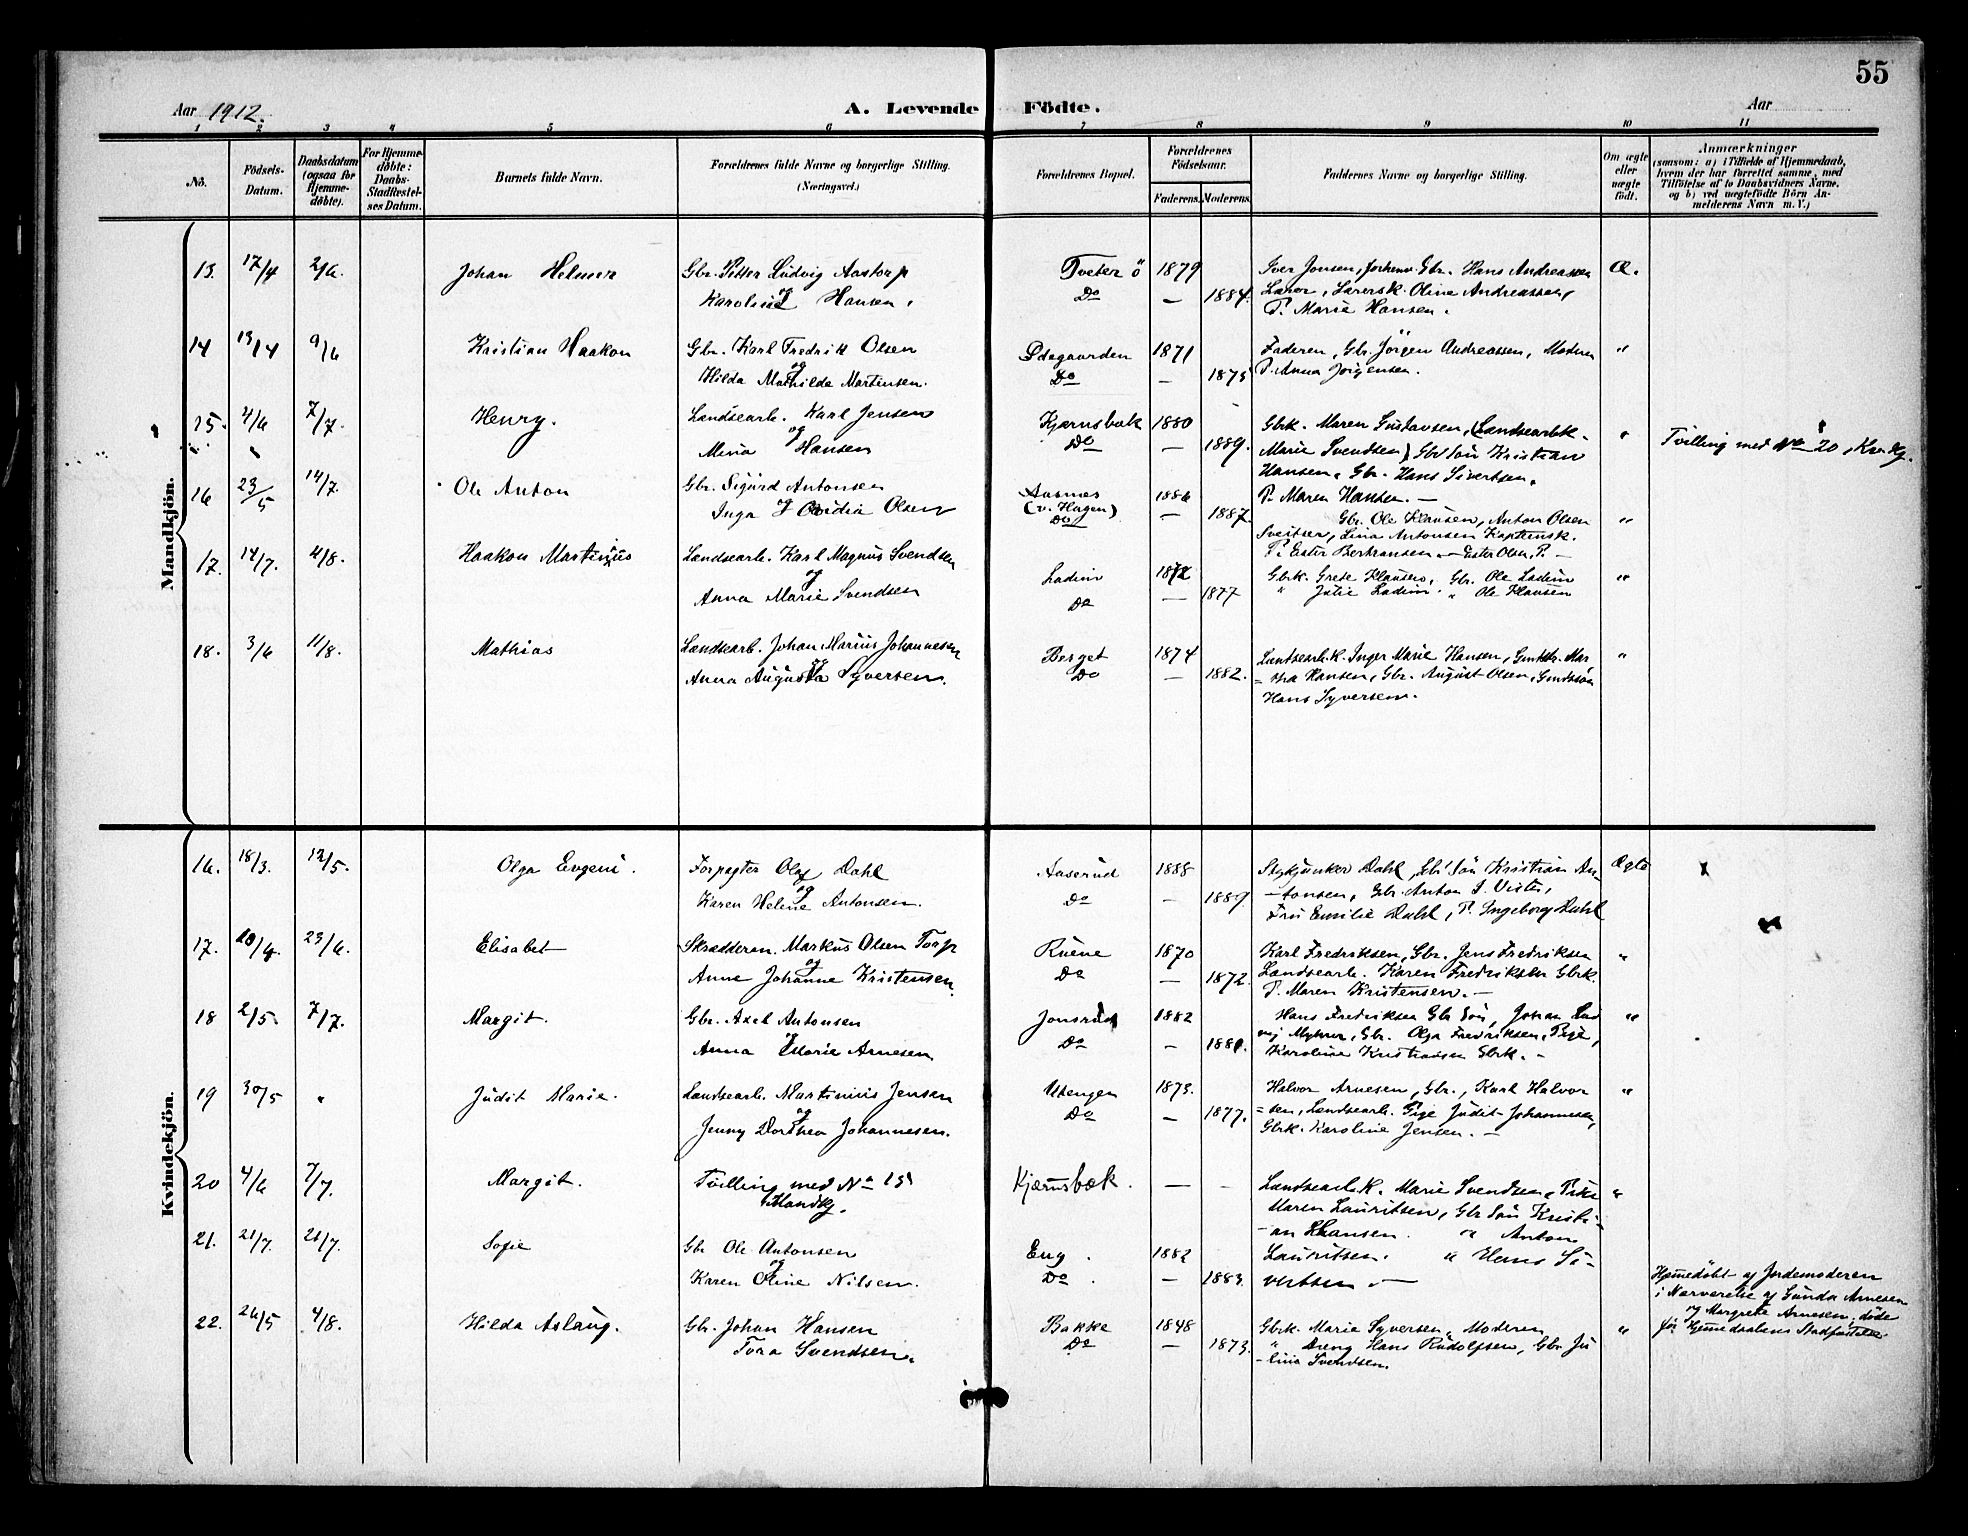 55
Aar 1912.
A. Levende Födte.
Aar
1 2 3 4 5 6 7 8 9 10 11
No.
Födsels-
Datum.
Daabsdatum
(ogsaa for
Hjemme-
døbte).
For Hjemme-
døbte:
Daabs-
Stadfæstel-
ses Datum.
Barnets fulde Navn.
Forældrenes fulde Navne og borgerlige Stilling.
(Næringsvei.)
Forældrenes Bopæl.
Forældrenes
Födselsaar.
Faderens. Moderens.
Faddernes Navne og borgerlige Stilling.
Om ægte
eller
uægte
födt.
Anmærkninger
(saasom: a) i Tilfælde af Hjemmedaab,
hvem der har forrettet samme, med
Tilföielse af to Daabsvidners Navne,
og b) ved uægtefödte Börn An-
melderens Navn m. V.)
Mandkjön.
13. 17/4 2/6. Johan Helmer Gbr. Petter Ludvig Aastorp Tveter ö 1879 Iver Jonsen, Gbr. Hans Andreassen Æ.
og
Karoline Hansen. Do — 1884. Lærer, Lærersk. Oline Andreassen,
P. Marie Hansen.
14 13/4 9/6 Kristian Haakon Gbr. Karl Fredrik Olsen 1871 Faderen, Gbr. Jörgen Andreassen, Moderen "
og
Hilda Mathilde Martinsen. Do — 1875 P. Anna Jörgensen.
15. 4/6 7/7. Henry. Landsearb. Karl Jensen Kjærnsbæk 1880 Gbrk. Maren Gustavsen, (Landsearbk. " Tvilling med No 20, Kv.kj.
og
Mina Hansen Do — 1889. Marie Svendsen) Gbr Sön Kristian
Hansen, Gbr. Hans Sivertsen,
P. Maren Hansen. —
16 23/5 14/7. Ole Anton Gbr. Sigurd Antonsen Aasnes 1886
og
Inga Olsen (v. Hagen) — 1887.
Do
Gbr. Ole Klausen, Anton Olsen "
Sveitser, Lina Antonsen Kaptensk.
P. Ester Bertransen. — Ester Olsen, P. —
17. 14/7. 4/8. Haakon Martinius Landsearb. Karl Magnus Svendsen Ladim 1872 Gbrk. Grete Klausen, Gbr. Ole Ladim "
og
Anna Marie Svendsen Do — 1877 " Julie Ladim. " Ole Klausen
18. 3/6 11/8. Mathias Landsearb. Johan Marius Johannesen Berget 1874 Landsearb.k. Inger Marie Hansen, Mar "
og
Anna Augusta Syversen. Do — 1882. = tha Hansen, Gbr. August Olsen,
Hans Syversen.
Kvindekjön.
16. 18/3. 12/5. Olga Evgeni. Forpagter Olaf Dahl Aaserud 1888 Dahl, Gbr Sön Kristian An- Ægte
og
Karen Helene Antonsen. Do — 1889. - tonsen, Gbr. Anton
Fru Emilie Dahl, P. Ingeborg Dahl
17. 23/6. Elisabet Skrædderen. Markus Olsen Torp Ruene 1870 Karl Fredriksen, Gbr. Jens Fredriksen "
og
Anne Johanne Kristensen. Do — 1872. Landsearb. Karen Fredriksen Gbrk.
P. Maren Kristensen. —
18 2/5. 7/7. Margit. Gbr. Axel Antonsen Jonsrud 1882 Hans Fredriksen Gbr Sön, Johan Lud "
og
Anna Marie Arnesen Do — vig Gbr. Olga Fredriksen, Pige,
Karoline Kristiansen Gbrk. -
19 30/5 " Judit Marie. Landsearb. Martinius Jensen Utengen 1873. Halvor Arnesen, Gbr., Karl Halvor "
og
Jenny Dorthea Johannesen. Do — 1877. =sen, Landsearb. Pige Judit Johannesen,
Gbrk. Karoline Jensen. —
20 4/6 7/7. Margit. Tvilling med No 15 Kjærnsbæk. — - Landsearb.k. Marie Svendsen, Pike "
Mandkj.
Maren Lauritsen, Gbr Sön Kristi-
- an Hansen. " Anton
21. 21/7. Sofie Gbr Ole Antonsen Eng. 1882 Lauritsen. " Hans Si-
og
Karen Oline Nilsen. Do. — 1883. vertsen. —
22. 26/5 4/8. Hilda Aslaug. Gbr. Johan Hansen Bakke 1848 Gbrk. Marie Syversen, Moderen "
Tora Svendsen. Do — 1873. " Dreng Hans Rudolfsen, Gbr. Ju
- lius Svendsen.
Hjemedöbt af Jordemoderen
i Nærverelse af Gunda Arnesen
og Margrete Arnesen, döde
för Hjemedaabens Stadfæstelse